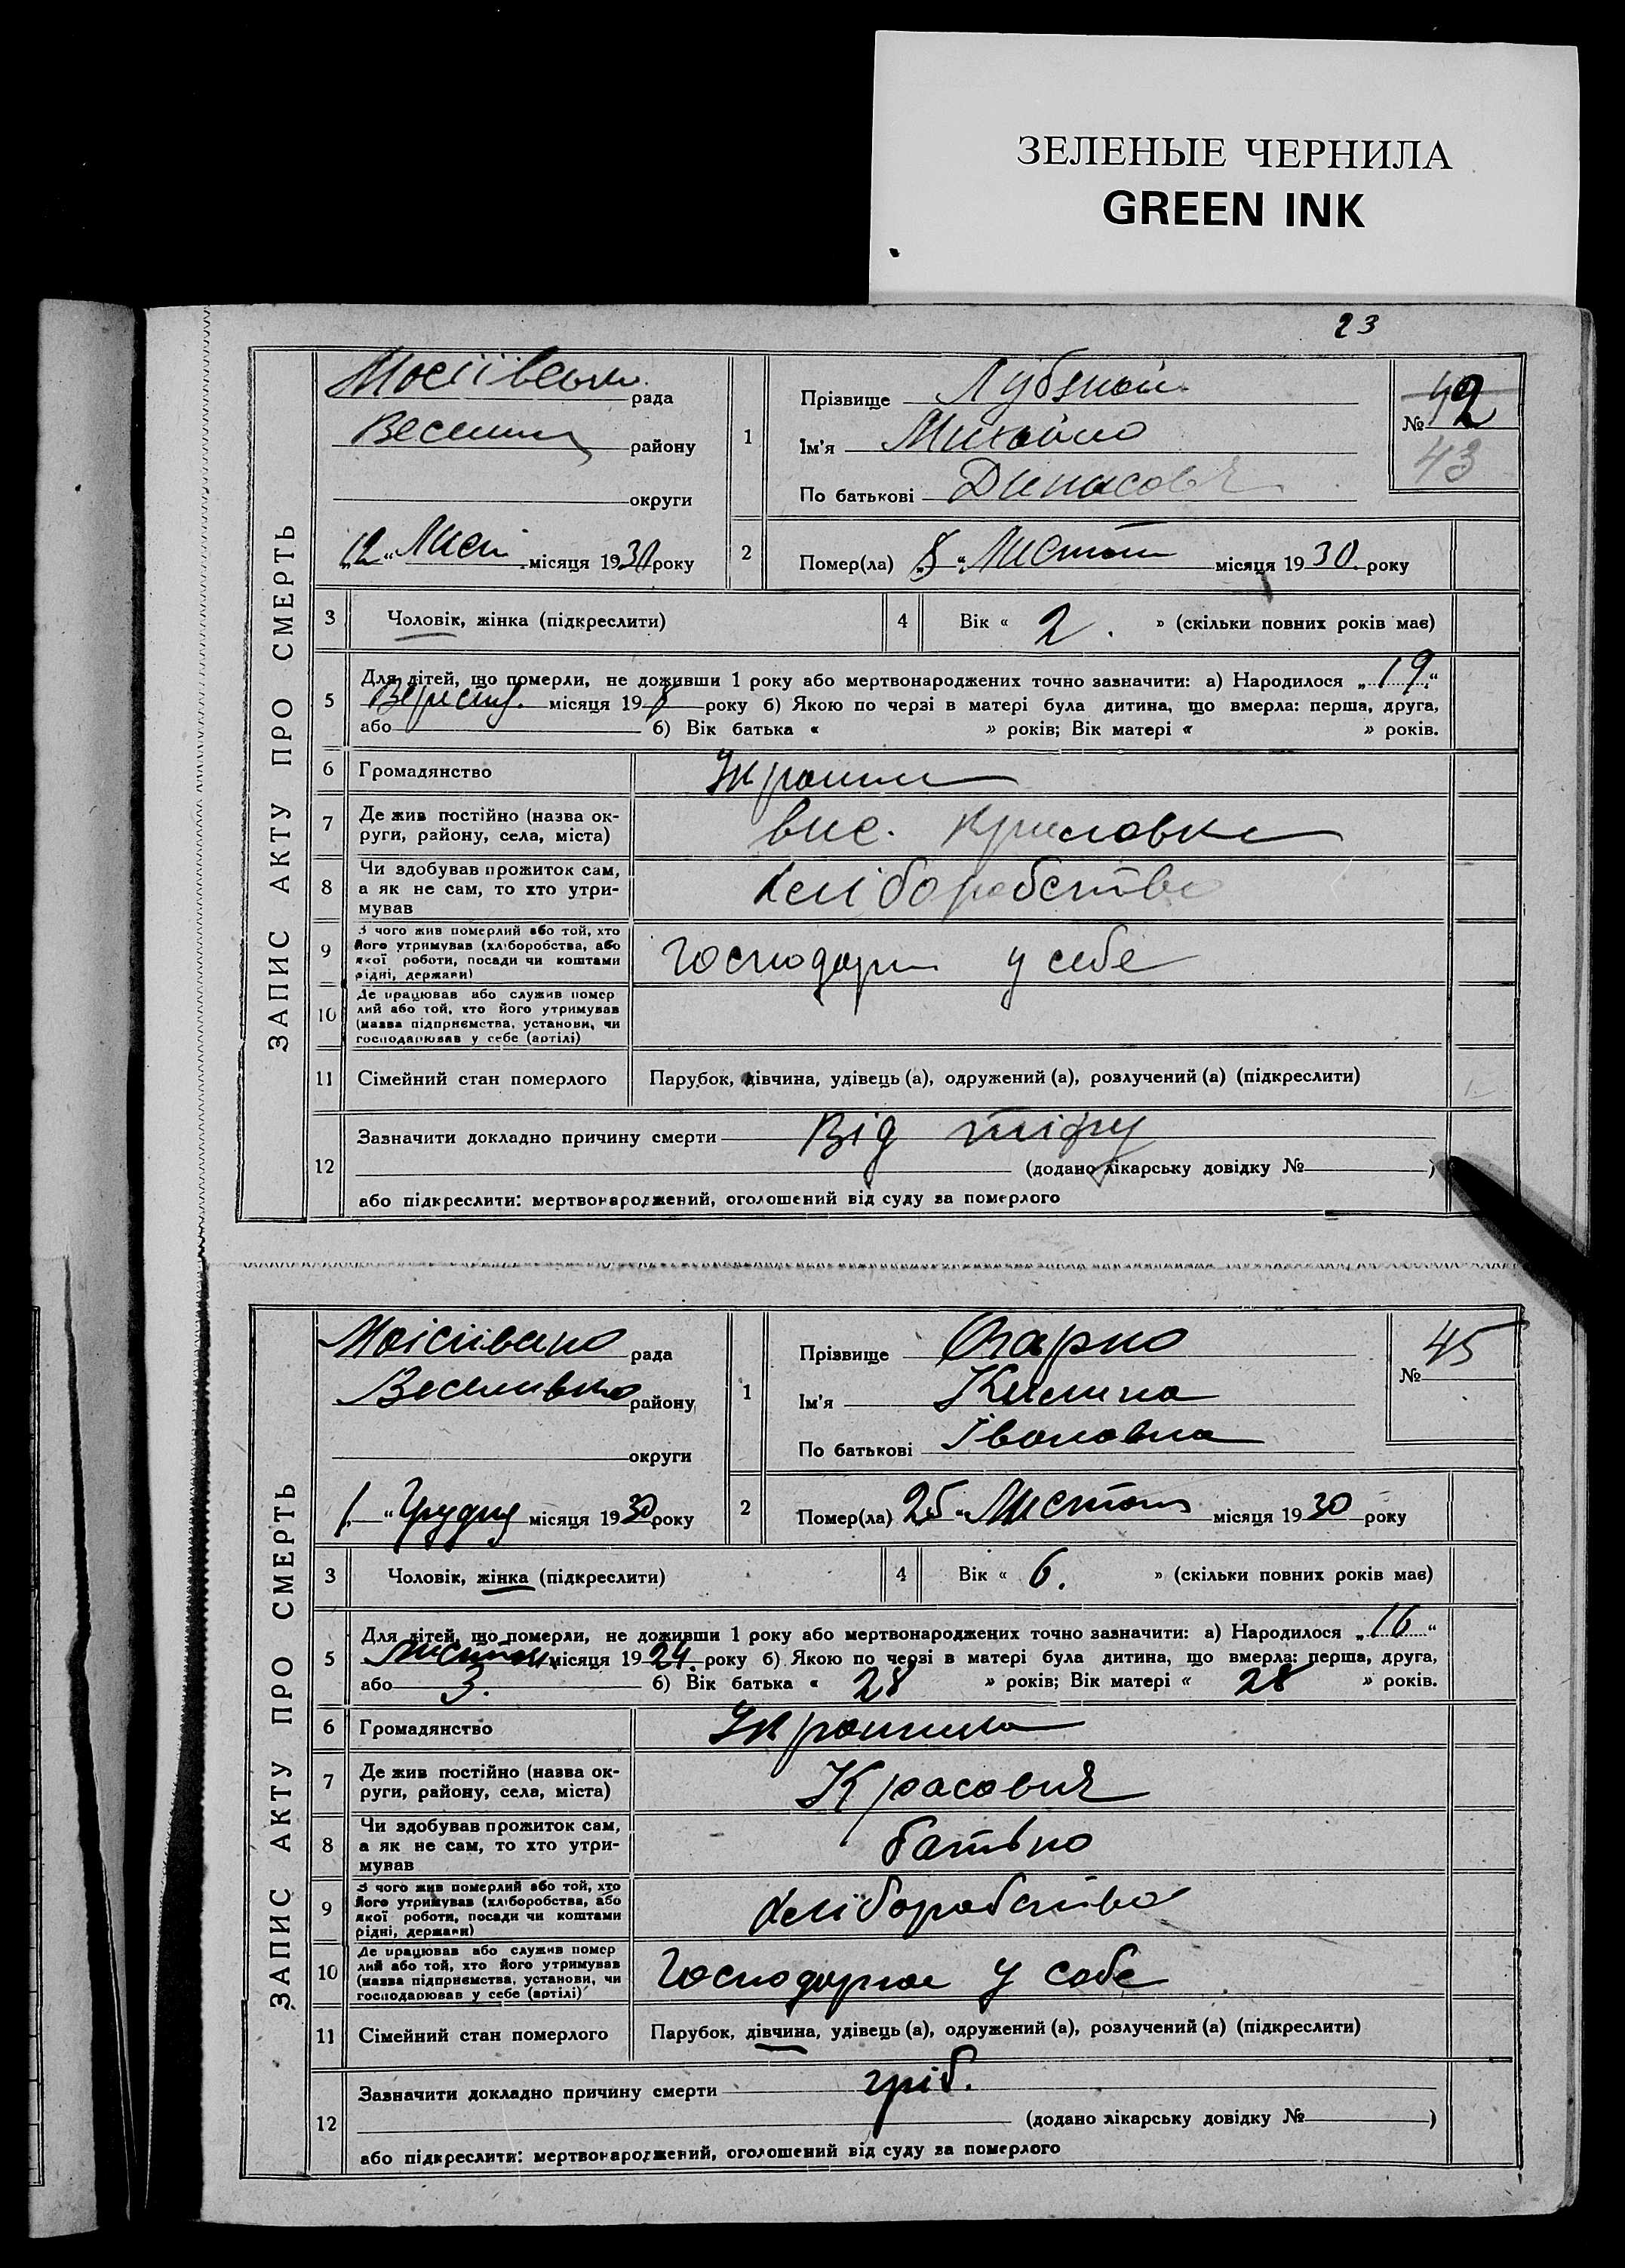 ЗЕЛЕНЫЕ ЧЕРНИЛА
GREEN INK
23
ЗАПИС АКТУ ПРО СМЕРТЬ
рада
району
округи
"12" Лист місяця 1930 року
1
Прізвище
Ім'я Михайло
По батькові
№ 42
43
2
Помер(ла) "8" Листоп місяця 1930 року
3
Чоловік, жінка (підкреслити)
4
Вік « 2. » (скільки повних років має)
5
Для дітей, що померли, не доживши 1 року або мертвонароджених точно зазначити: а) Народилося „19“
місяця 198 року б) Якою по черзі в матері була дитина, що вмерла: перша, друга,
або б) Вік батька « » років; Вік матері « » років.
6
Громадянство
7
Де жив постійно (назва ок-
руги, району, села, міста)
8
Чи здобував прожиток сам,
а як не сам, то хто утри-
мував
хліборобство
9
З чого жив померлий або той, хто
його утримував (хліборобства, або
якої роботи, посади чи коштами
рідні, держави)
у себе
10
Де працював або служив помер
лий або той, хто його утримував
(назва підприємства, установи, чи
господарював у себе (артілі)
11
Сімейний стан померлого
Парубок, дівчина, удівець (а), одружений (а), розлучений (а) (підкреслити)
12
Зазначити докладно причину смерти Від тіфу
(додано лікарську довідку № )
або підкреслити: мертвонароджений, оголошений від суду за померлого
ЗАПИС АКТУ ПРО СМЕРТЬ
рада
району
округи
"1" Грудня місяця 1930 року
1
Прізвище
Ім'я
По батькові Івановна
№ 45
2
Помер(ла) 25 "Листоп місяця 1930 року
3
Чоловік, жінка (підкреслити)
4
Вік « 6. » (скільки повних років має)
5
Для дітей, що померли, не доживши 1 року або мертвонароджених точно зазначити: а) Народилося „16“
Листоп місяця 1924. року б) Якою по черзі в матері була дитина, що вмерла: перша, друга,
або 3. б) Вік батька « 28 » років; Вік матері « 28 » років.
6
Громадянство
7
Де жив постійно (назва ок-
руги, району, села, міста)
8
Чи здобував прожиток сам,
а як не сам, то хто утри-
мував
батько
9
З чого жив померлий або той, хто
його утримував (хліборобства, або
якої роботи, посади чи коштами
рідні, держави)
хліборобство
10
Де працював або служив помер
лий або той, хто його утримував
(назва підприємства, установи, чи
господарював у себе (артілі)
у собе
11
Сімейний стан померлого
Парубок, дівчина, удівець (а), одружений (а), розлучений (а) (підкреслити)
12
Зазначити докладно причину смерти гріб.
(додано лікарську довідку № )
або підкреслити: мертвонароджений, оголошений від суду за померлого